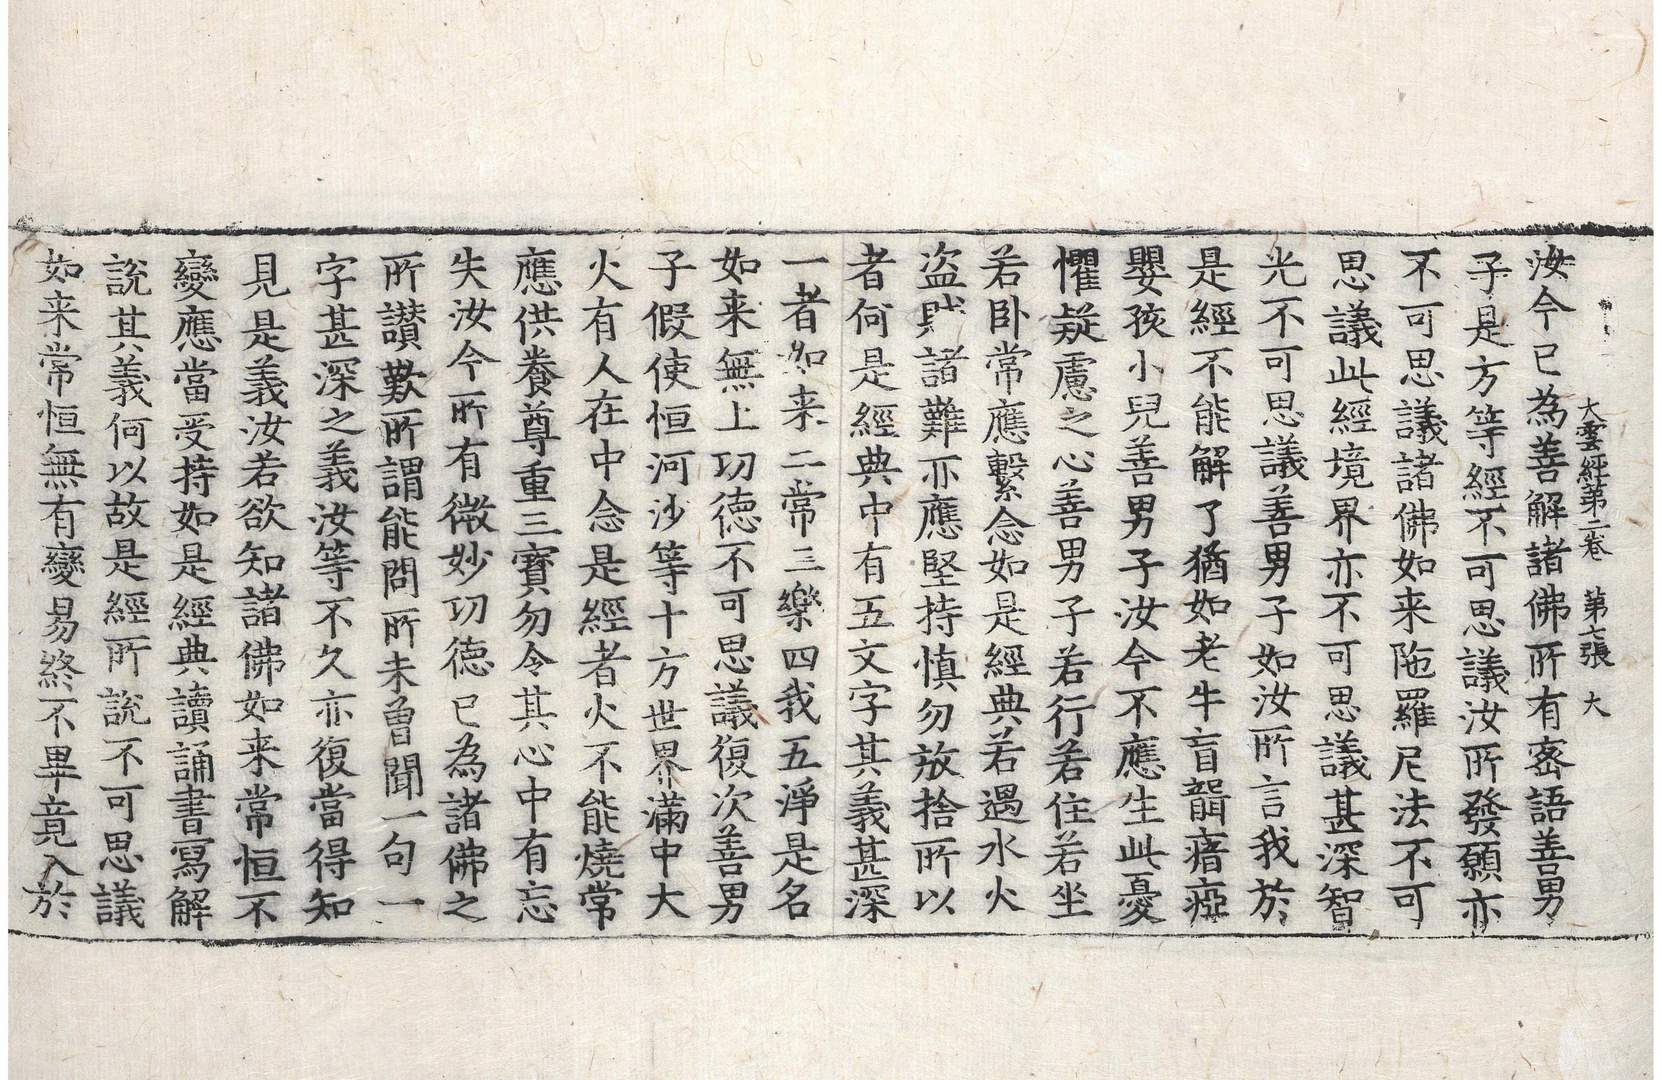 大雲經第二卷 第七張 大
汝今已為善解諸佛所有密語善男
子是方等經不可思議汝所發願亦
不可思議諸佛如来陁羅尼法不可
思議此經境界亦不可思議甚深智
光不可思議善男子如汝所言我於
是經不能解了猶如老牛盲聾瘖瘂
嬰孩小兒善男子汝今不應生此憂
懼疑慮之心善男子若行若住若坐
若卧常應繫念如是經典若遇水火
盗賊諸難亦應堅持慎勿放捨所以
者何是經典中有五文字其義甚深
一者如来二常三樂四我五淨是名
如来無上功德不可思議復次善男
子假使恒河沙等十方世界滿中大
火有人在中念是經者火不能燒常
應供養尊重三寳勿令其心中有忘
失汝今所有微妙功德已為諸佛之
所讃歎所謂能問所未曾聞一句一
字甚深之義汝等不久亦復當得知
見是義汝若欲知諸佛如来常恒不
變應當受持如是經典讀誦書寫解
說其義何以故是經所說不可思議
如来常恒無有變易終不畢竟入於